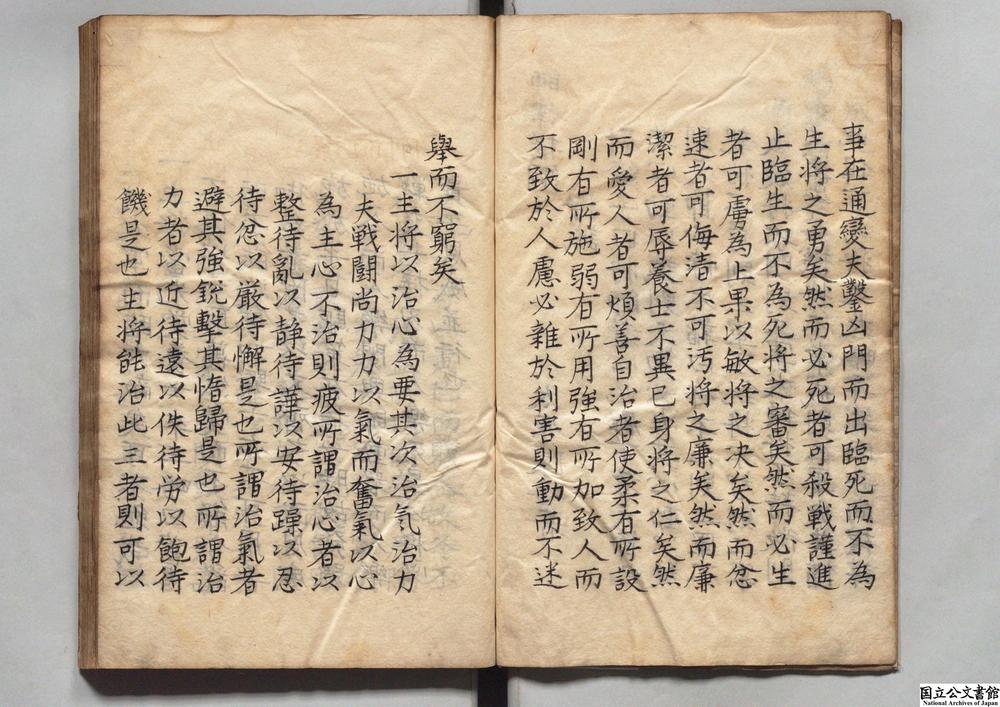 事在通變夫鑿凶門而出臨死而不為
生將之勇矣然而必死者可殺戦謹進
止臨生而不為死將之審矣然而必生
者可虜為上果以敏將之决矣然而忿
速者可侮清不可汚將之廉矣然而廉
潔者可辱養士不異已身將之仁矣然
而愛人者可煩善自治者使柔有所設
剛有所施弱有所用強有所加致人而
不致於人慮必雜於利害則動而不迷
舉而不窮矣
一主將以治心為要其次治気治力
夫戦闘尚力力以氣而奮氣以心
為主心不治則疲所謂治心者以
整待亂以静待譁以安待躁以忍
待忿以厳待懈是也所謂治氣者
避其強銳擊其惰歸是也所謂治
力者以近待遠以佚待労以飽待
饑是也主將能治此三者則可以
国立公文書館
National Archives of Japan